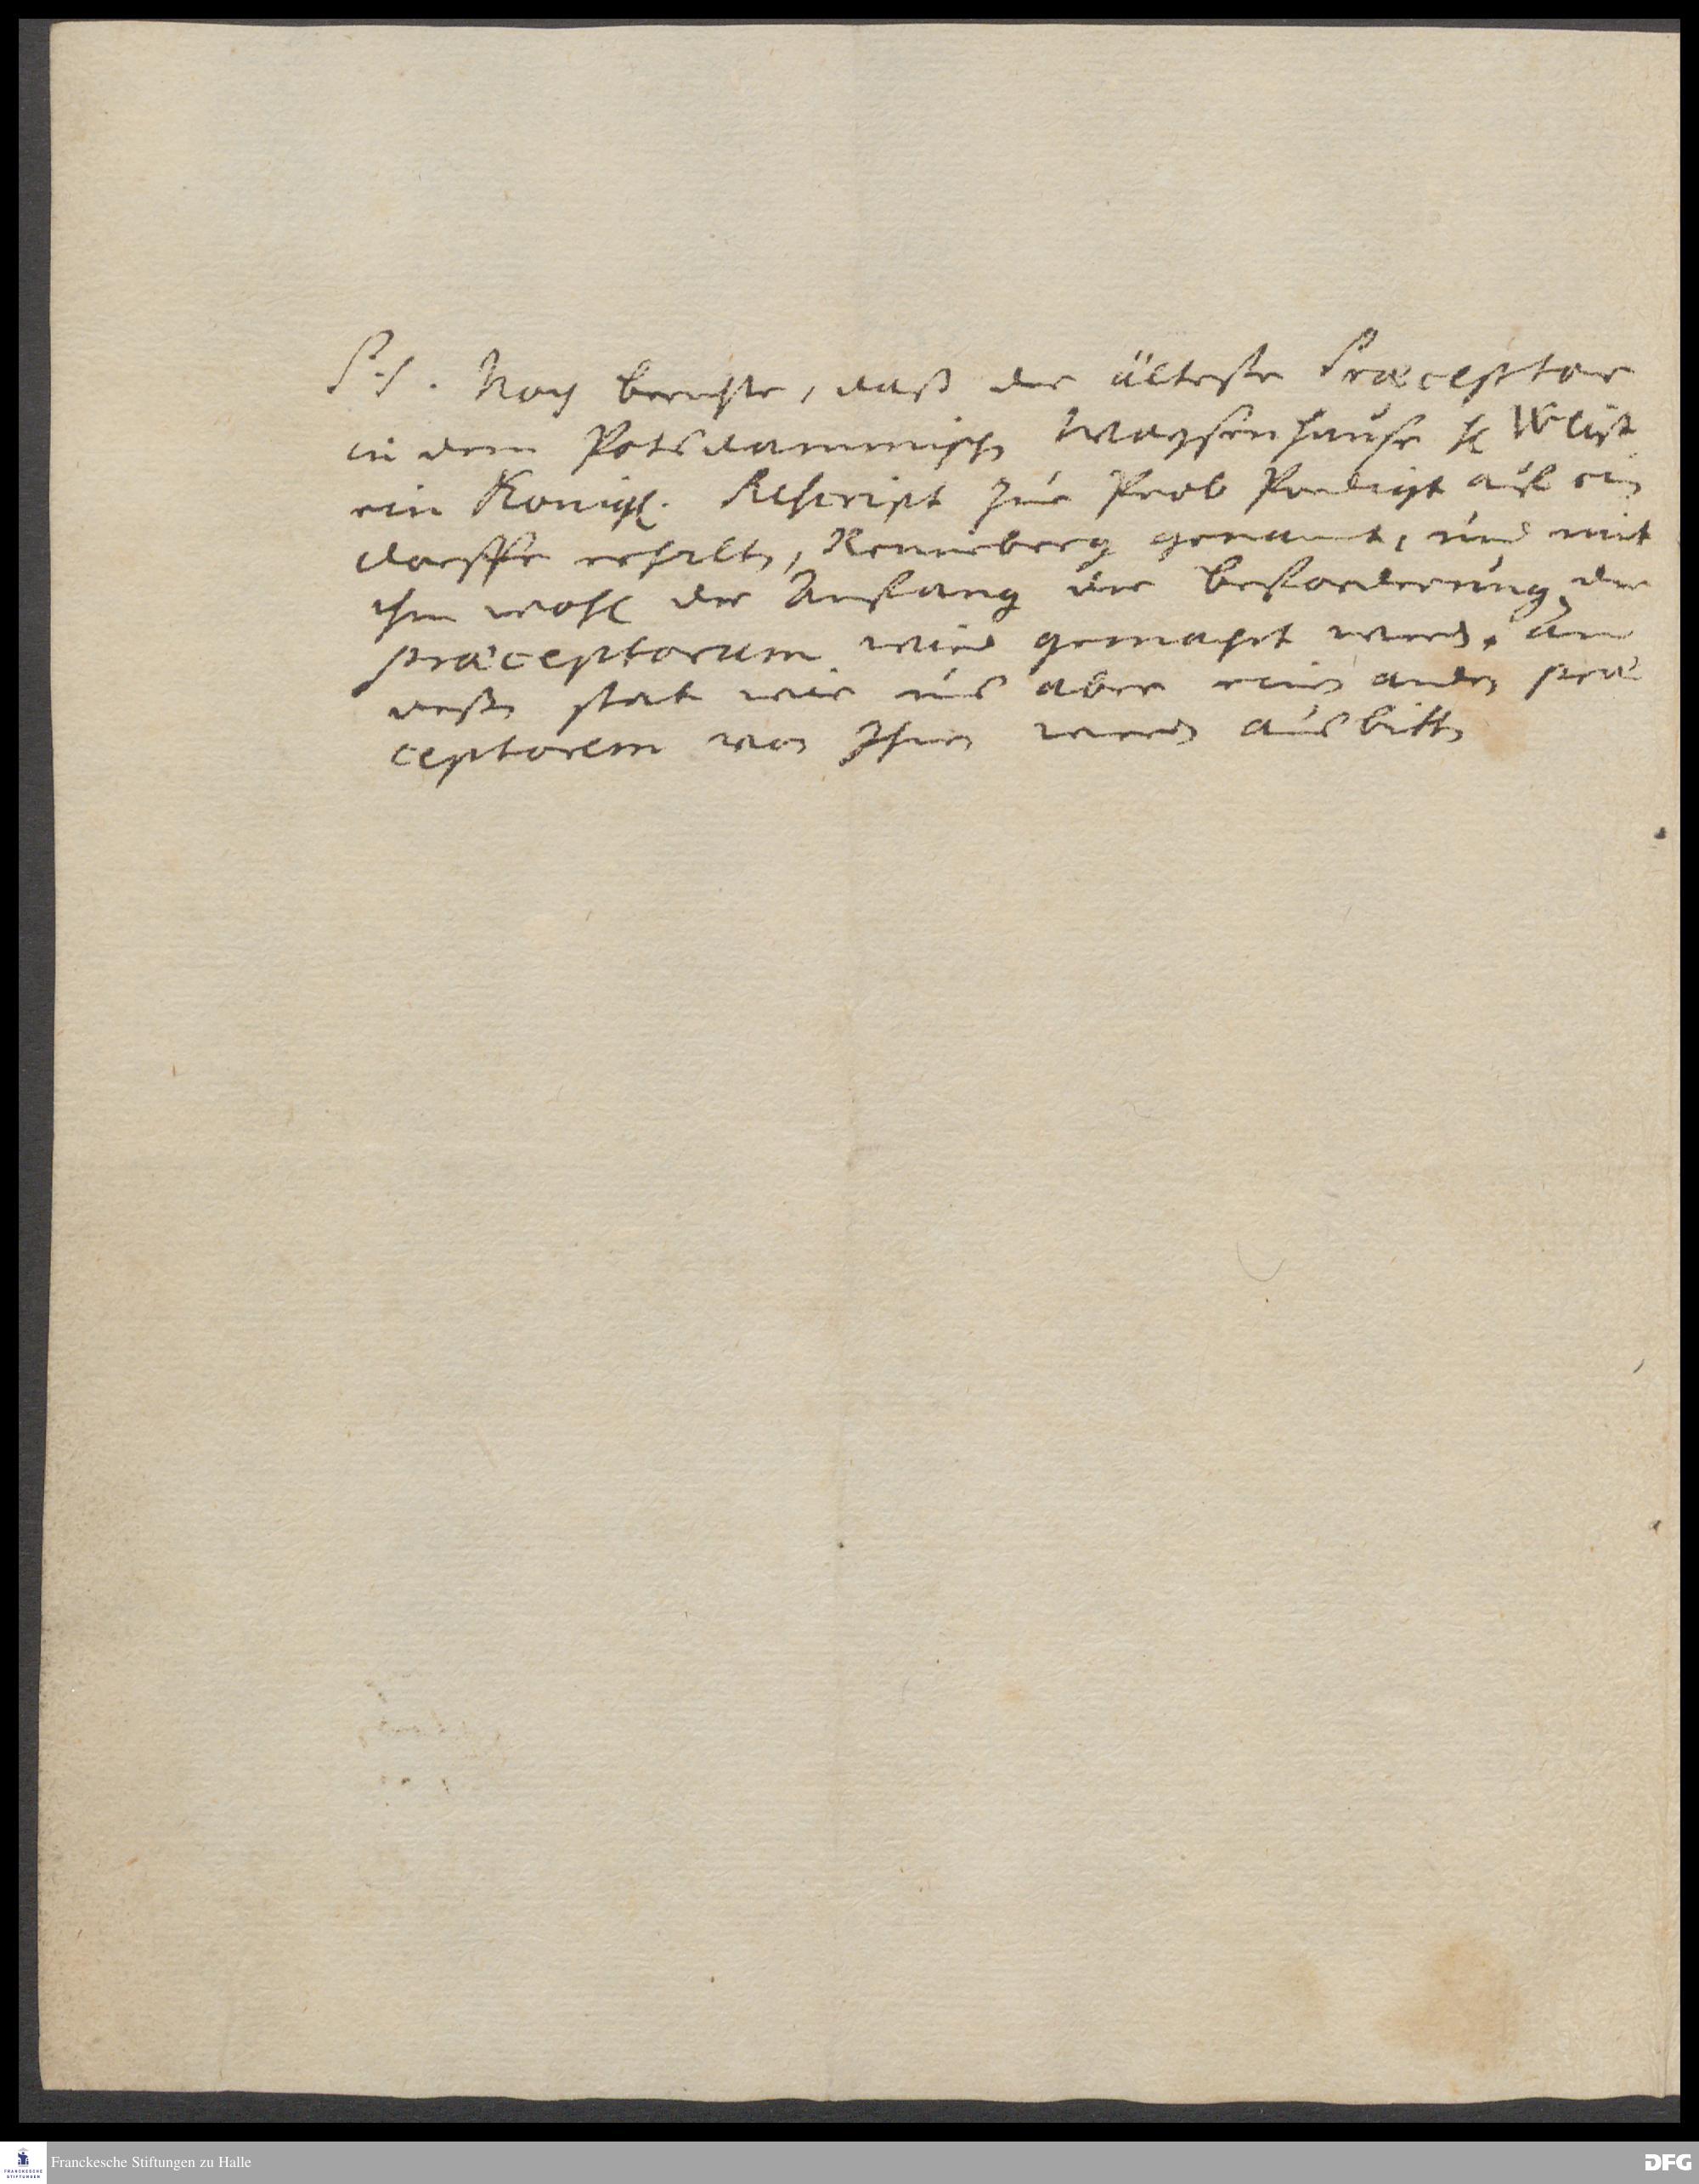 P.S. Noch berichte, daß der älteste Præceptor
in dem Potsdammischen Waysenhause H.
ein Königl. Rescript zur Prob Predigt auf ein
dorffe erhalten, Renneberg genannt, und mit
ihm wohl der Anfang der beforderung der
præceptorum wird gemacht werden. an
deßen statt wir uns aber einen andern præ
ceptorem von Ihnen werden ausbitten
Franckesche Stiftungen zu Halle
FRANCKESCHE
STIFTUNGEN
DFG